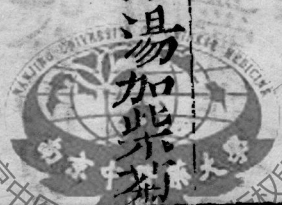 湯加柴菊
NANJING UNIVERSITY OF CHINESE MEDICINE
南京中医药大學